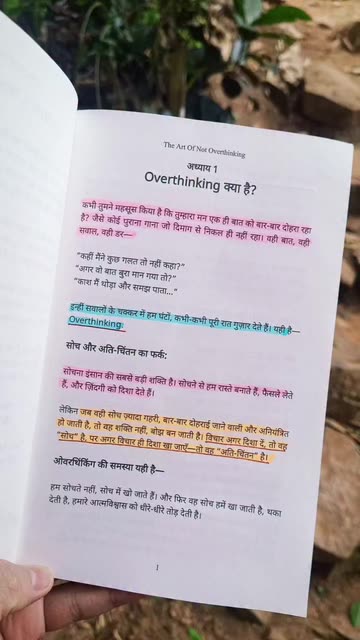 The Art Of Not Overthinking
अध्याय 1
Overthinking क्या है?
कभी तुमने महसूस किया है कि तुम्हारा मन एक ही बात को बार-बार दोहरा रहा
है? जैसे कोई पुराना गाना जो दिमाग से निकल ही नहीं रहा। वही बात, वही
सवाल, वही डर—
"कहीं मैंने कुछ गलत तो नहीं कहा?"
"अगर वो बात बुरा मान गया तो?"
"काश मैं थोड़ा और समझ पाता..."
इन्हीं सवालों के चक्कर में हम घंटों, कभी-कभी पूरी रात गुज़ार देते हैं। यही है—
Overthinking.
सोच और अति-चिंतन का फर्क:
सोचना इंसान की सबसे बड़ी शक्ति है। सोचने से हम रास्ते बनाते हैं, फैसले लेते
हैं, और ज़िंदगी को दिशा देते हैं।
लेकिन जब वही सोच ज़्यादा गहरी, बार-बार दोहराई जाने वाली और अनियंत्रित
हो जाती है, तो वह शक्ति नहीं, बोझ बन जाती है। विचार अगर दिशा दें, तो वह
"सोच" है, पर अगर विचार ही दिशा खा जाएँ—तो वह "अति-चिंतन" है।
ओवरथिंकिंग की समस्या यही है—
हम सोचते नहीं, सोच में खो जाते हैं। और फिर वह सोच हमें खा जाती है, थका
देती है, हमारे आत्मविश्वास को धीरे-धीरे तोड़ देती है।
1